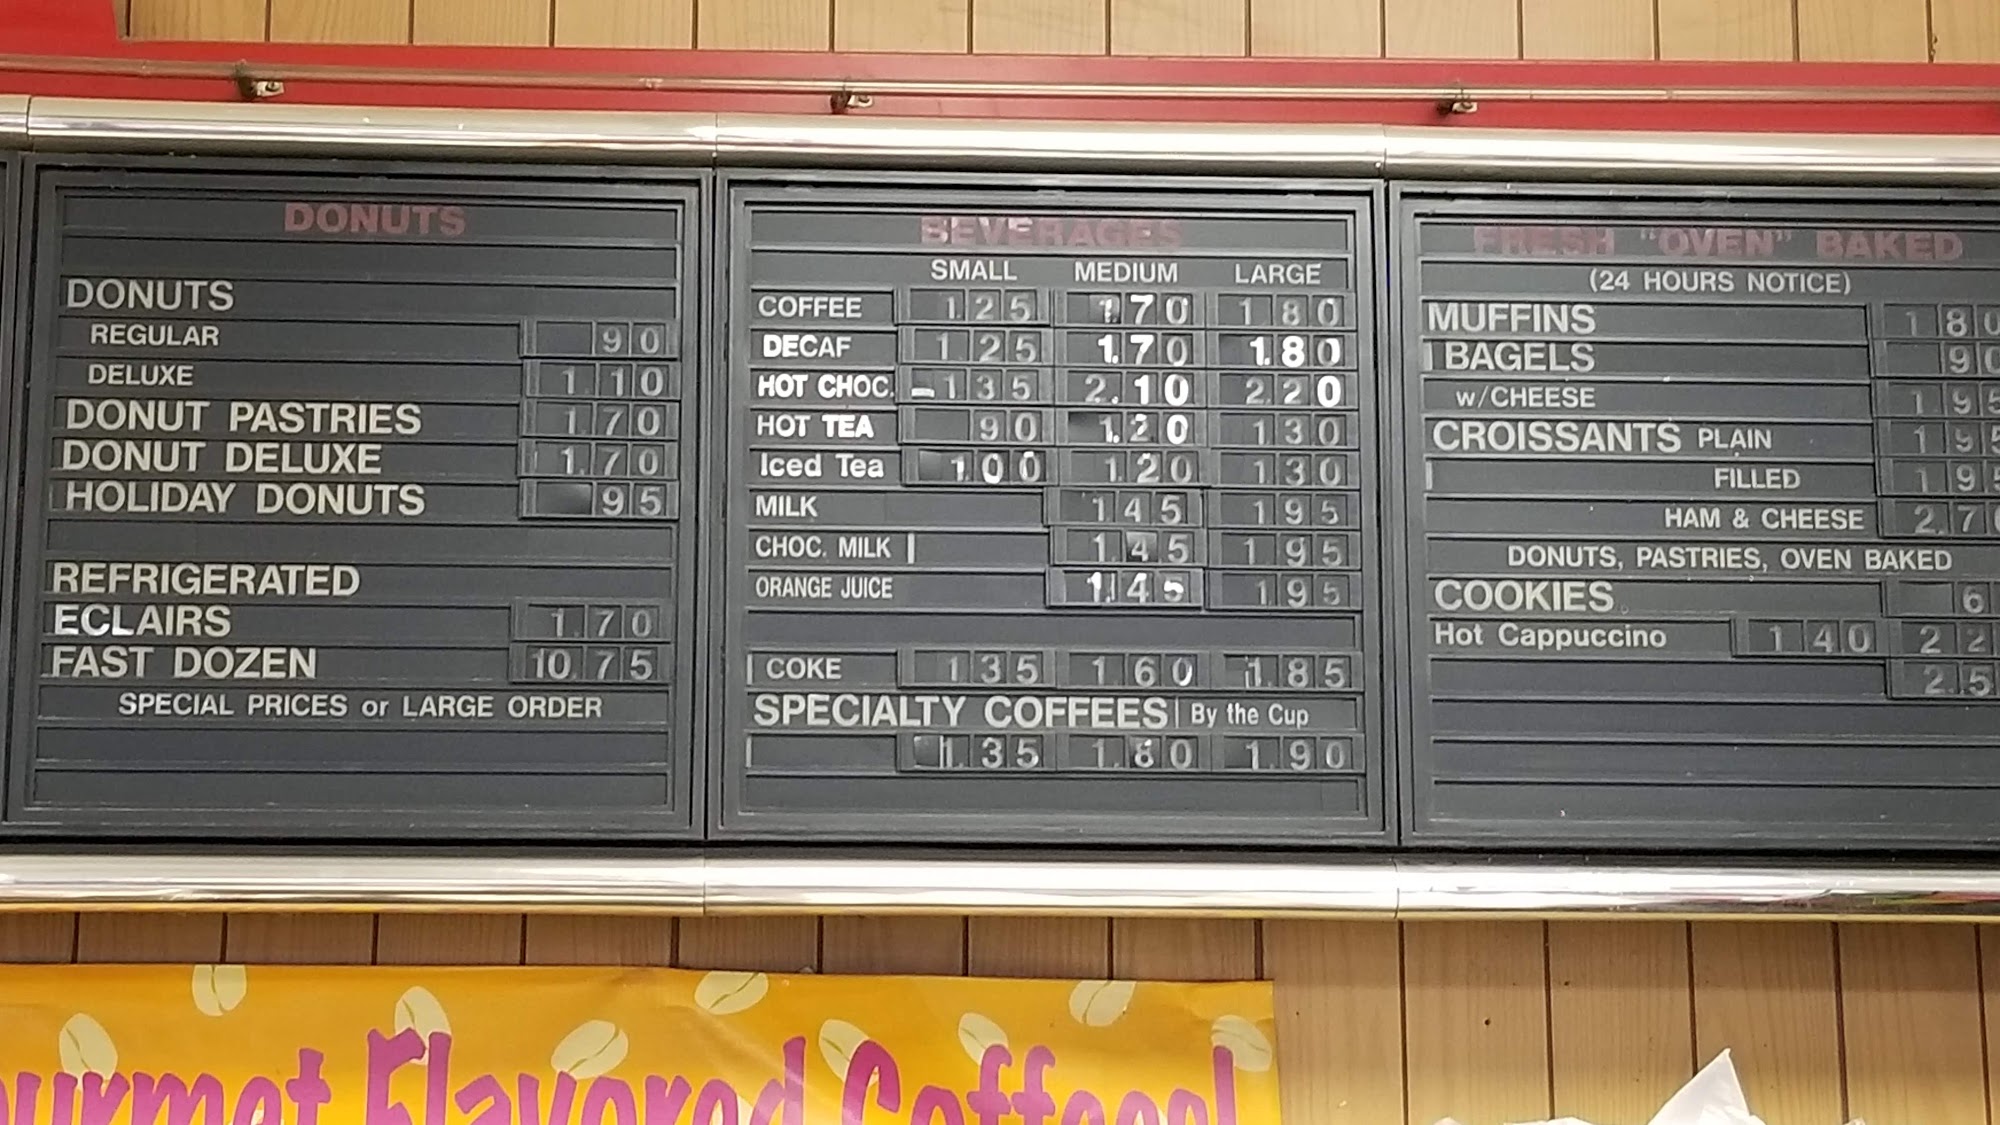 DONUTS
DONUTS
REGULAR 90
DELUXE 1.10
DONUT PASTRIES 1.70
DONUT DELUXE 1.70
HOLIDAY DONUTS 95
REFRIGERATED
ECLAIRS 1.70
FAST DOZEN 10.75
SPECIAL PRICES or LARGE ORDER
BEVERAGES
SMALL MEDIUM LARGE
COFFEE 1.25 1.70 1 80
DECAF 1 25 1.70 1.80
HOT CHOC. -1 35 2.10 2 20
HOT TEA 90 1.20 1 30
Iced Tea 1.00 1.20 1 30
MILK 1 45 1 95
CHOC. MILK 1.45 1 95
ORANGE JUICE 1.45 1 95
COKE 1 35 1 60 1.85
SPECIALTY COFFEES By the Cup
1.35 1.80 1.90
FRESH "OVEN" BAKED
(24 HOURS NOTICE)
MUFFINS 1 80
BAGELS 90
w/CHEESE 1 95
CROISSANTS PLAIN 1 95
FILLED 1 95
HAM & CHEESE 2.7
DONUTS, PASTRIES, OVEN BAKED
COOKIES 6
Hot Cappuccino 1 40 2 2
2.5
Flavored Coffees!